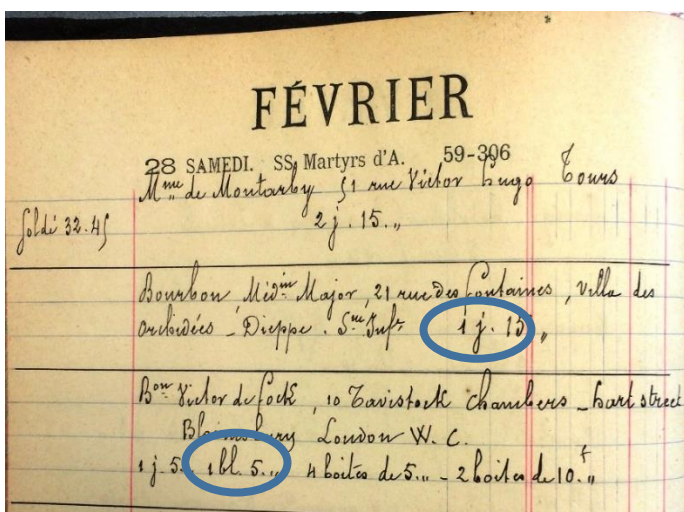 FÉVRIER
28 SAMEDI. SS. Martyrs d'A. 59-306
Mme de Montarby 51 rue Victor Hugo Tours
Soldé 32.45 2 j. 15.„
Bourbon Médin Major, 21 rue des Fontaines, Villa des
Orchidées - Dieppe. Sne Infre 1 j. 15 „
Bon Victor de Fock, 10 Tavistock Chambers - hart street
Bloomsbury London W. C.
1 j. 5.„ 1 bl. 5.„ 4 boites de 5.„ - 2 boites de 10.f „